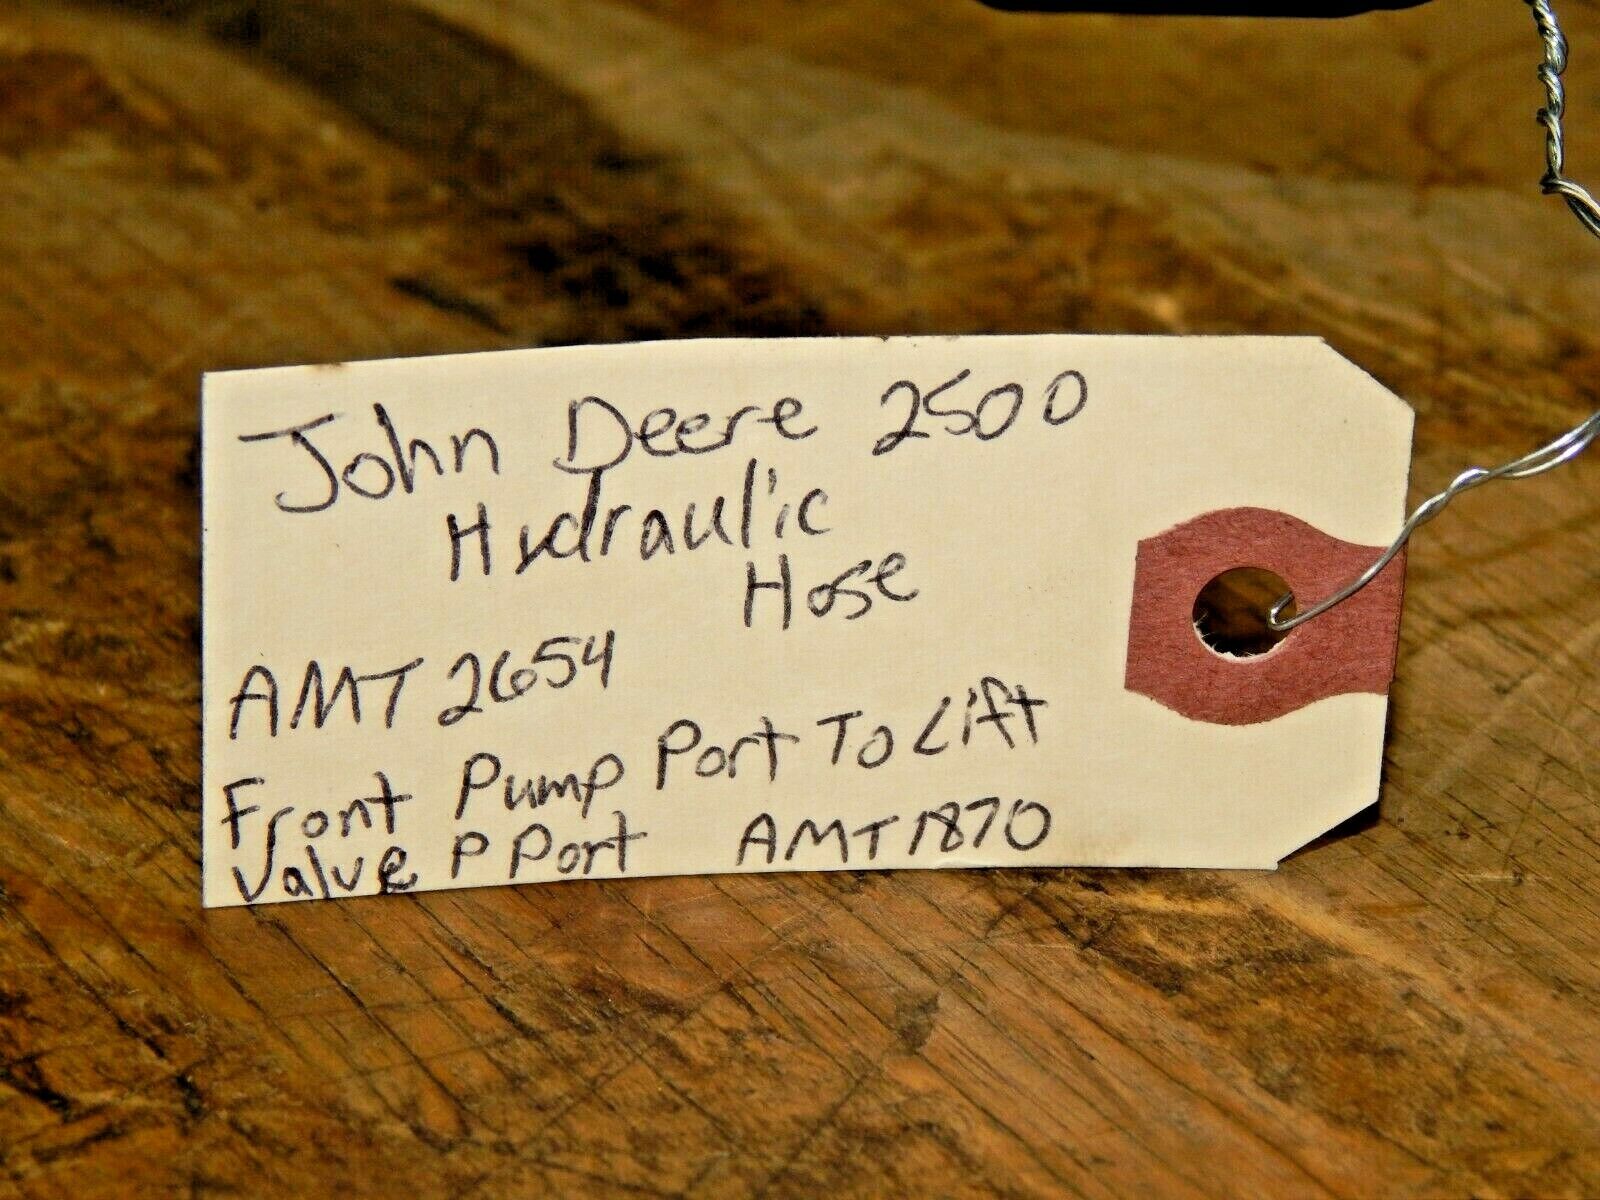 John Deere 2500
Hydraulic
Hose
AMT 2654
Front Pump Port To Lift
Valve P Port AMT1870